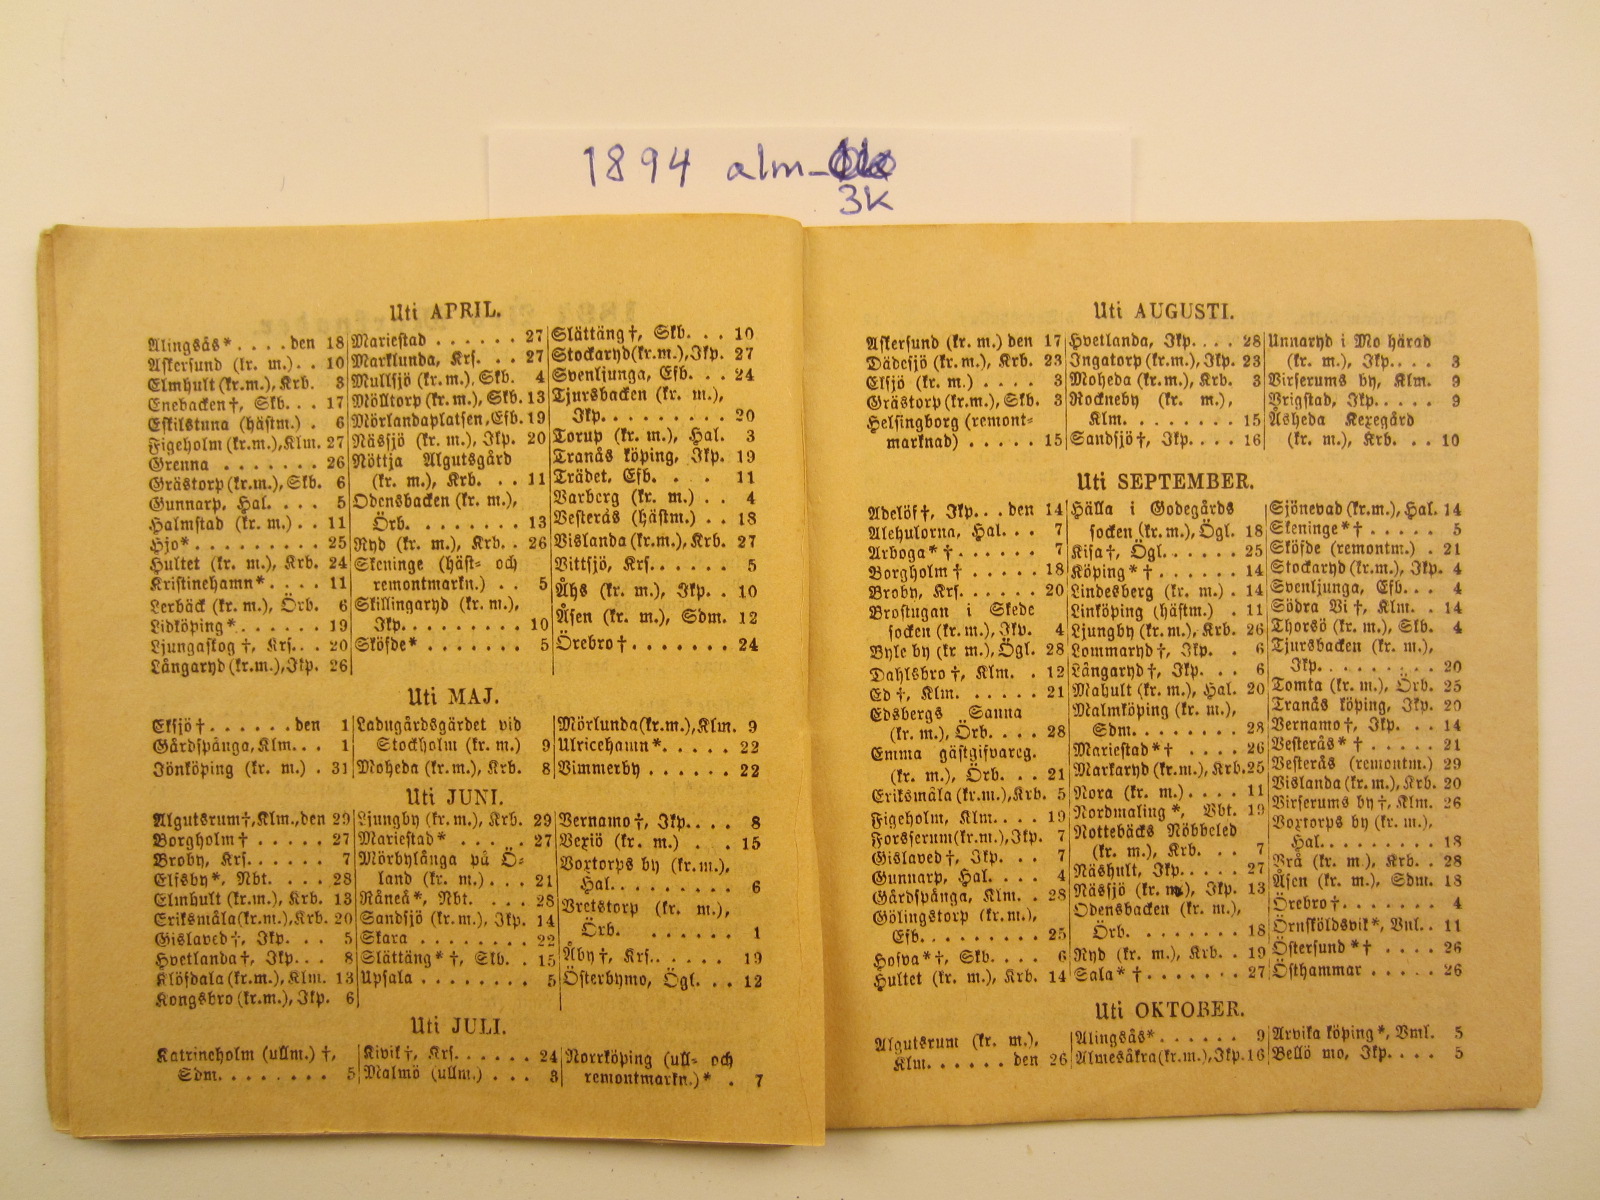 1894 alm-
3K
Uti APRIL.
Alingsås* . . . . den 18
Askersund (kr. m.) . . 10
Elmhult (kr.m.), Krb. 3
Enebacken†, Skb. . . 17
Eskilstuna (hästm.) . 6
Figeholm (kr.m.), Klm. 27
Grenna . . . . . . . 26
Grästorp (kr.m.), Skb. 6
Gunnarp, Hal. . . . 5
Halmstad (kr. m.) . . 11
Hjo* . . . . . . . . 25
Hultet (kr. m.), Krb. 24
Kristinehamn* . . . . 11
Lerbäck (kr. m.), Örb. 6
Lidköping* . . . . . . 19
Ljungaskog †, Krs. . . 20
Långaryd (kr.m.), Jkp. 26
Mariestad . . . . . . 27
Marklunda, Krs. . . 27
Mullsjö (kr.m.), Skb. 4
Mölltorp (kr. m.), Skb. 13
Mörlandaplatsen, Efb. 19
Nässjö (kr. m.), Jkp. 20
Nöttja Algutsgård
(kr. m.), Krb. . . 11
Odensbacken (kr. m.),
Örb. . . . . . . . 13
Ryd (kr. m.), Krb. . 26
Skeninge (häst- och
remontmarkn.) . . 5
Skillingaryd (kr. m.),
Jkp. . . . . . . . . 10
Sköfde* . . . . . . . 5
Slättäng†, Skb. . . 10
Stockaryd (kr.m.), Jkp. 27
Svenljunga, Efb. . . 24
Tjursbacken (kr. m.),
Jkp. . . . . . . . . 20
Torup (kr. m.), Hal. 3
Tranås köping, Jkp. 19
Trädet, Efb. . . . 11
Varberg (kr. m.) . . 4
Vesterås (hästm.) . . 18
Vislanda (kr.m.), Krb. 27
Vittsjö, Krs. . . . . . 5
Åhs (kr. m.), Jkp. . 10
Åsen (kr. m.), Sdm. 12
Örebro† . . . . . . . 24
Uti MAJ.
Eksjö† . . . . . . den 1
Gårdspånga, Klm. . . 1
Jönköping (kr. m.) . 31
Ladugårdsgärdet vid
Stockholm (kr. m.) 9
Moheda (kr.m.), Krb. 8
Mörlunda (kr.m.), Klm. 9
Ulricehamn* . . . . . 22
Vimmerby . . . . . . 22
Uti JUNI.
Algutsrum†, Klm., den 29
Borgholm† . . . . . 27
Broby, Krs. . . . . . 7
Elfsby*, Nbt. . . . 28
Elmhult (kr.m.), Krb. 13
Eriksmåla (kr.m.), Krb. 20
Gislaved†, Jkp. . . . 5
Hvetlanda†, Jkp. . . 8
Klöfdala (kr.m.), Klm. 13
Kongsbro (kr.m.), Jkp. 6
Ljungby (kr. m.), Krb. 29
Mariestad* . . . . . 27
Mörbylånga på Ö-
land (kr. m.) . . . 21
Råneå*, Nbt. . . . 28
Sandsjö (kr. m.), Jkp. 14
Skara . . . . . . . . 22
Slättäng* †, Skb. . . 15
Upsala . . . . . . . . 5
Vernamo†, Jkp. . . . 8
Vexiö (kr. m.) . . . 15
Voxtorps by (kr.m.),
Hal. . . . . . . . . 6
Vretstorp (kr. m.),
Örb. . . . . . . 1
Åby†, Krs. . . . . . 19
Österbymo, Ögl. . . 12
Uti JULI.
Katrineholm (ullm.) †,
Sdm. . . . . . . . . 5
Kivik†, Krs. . . . . . 24
Malmö (ullm.) . . . 3
Norrköping (ull- och
remontmarkn.)* . 7
Uti AUGUSTI.
Askersund (kr. m.) den 17
Dädesjö (kr. m.), Krb. 23
Elsjö (kr. m.) . . . . 3
Grästorp (kr.m.), Skb. 3
Helsingborg (remont-
marknad) . . . . . 15
Hvetlanda, Jkp. . . . 28
Ingatorp (kr.m.), Jkp. 23
Moheda (kr.m.), Krb. 3
Rockneby (kr. m.),
Klm. . . . . . . . 15
Sandsjö†, Jkp. . . . 16
Unnaryd i Mo härad
(kr. m.), Jkp. . . 3
Virserums by, Klm. 9
Vrigstad, Jkp. . . . . 9
Åsheda Kexegård
(kr. m.), Krb. . . . 10
Uti SEPTEMBER.
Adelöf†, Jkp. . . den 14
Alehulorna, Hal. . . . 7
Arboga* † . . . . . . 7
Borgholm† . . . . . 18
Broby, Krs. . . . . . 20
Brostugan i Skede
socken (kr. m.), Jkp. 4
Byle by (kr m.), Ögl. 28
Dahlsbro†, Klm. . 12
Ed†, Klm. . . . . . 21
Edsbergs Sanna
(kr. m.), Örb. . . . 28
Emma gästgifvareg.
(kr. m.), Örb. . . . 21
Eriksmåla (kr.m.), Krb. 5
Figeholm, Klm. . . . 19
Forsserum (kr.m.), Jkp. 7
Gislaved†, Jkp. . . . 7
Gunnarp, Hal. . . . 4
Gårdspånga, Klm. . 28
Gölingstorp (kr.m.),
Efb. . . . . . . . . 25
Hofva*†, Skb. . . . 6
Hultet (kr. m.), Krb. 14
Hälla i Godegårds
socken (kr. m.), Ögl. 18
Kisa†, Ögl. . . . . . 25
Köping* † . . . . . . 14
Lindesberg (kr. m.) . 14
Linköping (hästm.) . 11
Ljungby (kr. m.), Krb. 26
Lommaryd†, Jkp. . 6
Långaryd†, Jkp. . . 6
Mahult (kr. m.), Hal. 20
Malmköping (kr. m.),
Sdm. . . . . . . . 28
Mariestad*† . . . . 26
Markaryd (kr. m.), Krb. 25
Nora (kr. m.) . . . . 11
Nordmaling*, Vbt. 19
Nottebäcks Nöbbeled
(kr. m.), Krb. . . . 7
Näshult, Jkp. . . . . 27
Nässjö (kr. m.), Jkp. 13
Odensbacken (kr. m.),
Örb. . . . . . . . 18
Ryd (kr. m.), Krb. . 19
Sala* † . . . . . . . . 27
Sjönevad (kr.m.), Hal. 14
Skeninge*† . . . . . 5
Sköfde (remontm.) . 21
Stockaryd (kr.m.), Jkp. 4
Svenljunga, Efb. . . 4
Södra Vi†, Klm. . . 14
Thorsö (kr. m.), Skb. 4
Tjursbacken (kr. m.),
Jkp. . . . . . . . . 20
Tomta (kr. m.), Örb. 25
Tranås köping, Jkp. 20
Vernamo†, Jkp. . . 14
Vesterås* † . . . . . 21
Vesterås (remontm.) 29
Vislanda (kr.m.), Krb. 20
Virserums by†, Klm. 26
Voxtorps by (kr. m.),
Hal. . . . . . . . . 18
Vrå (kr. m.), Krb. . 28
Åsen (kr. m.), Sdm. 18
Örebro† . . . . . . . 4
Örnsköldsvik*, Vnl. . 11
Östersund*† . . . . 26
Östhammar . . . . . 26
Uti OKTOBER.
Algutsrum (kr. m.),
Klm. . . . . . . den 26
Alingsås* . . . . . . . 9
Almesåkra (kr.m.), Jkp. 16
Arvika köping*, Vml. 5
Bellö mo, Jkp. . . . 5